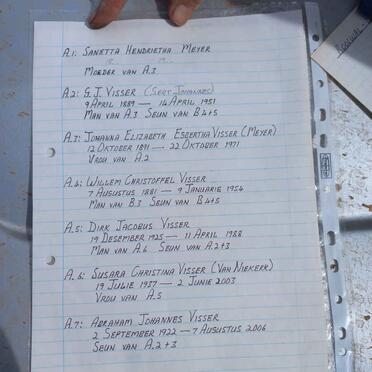 A.1: SANETTA HENDRIETHA MEYER
MOEDER VAN A.3
A.2: G.J. VISSER (GERT JOHANNES)
9 APRIL 1889 — 14 APRIL 1951
MAN VAN A.3 SEUN VAN B4+5
A.3: JOHANNA ELIZABETH ESBERTHA VISSER (MEYER)
12 OKTOBER 1891 — 22 OKTOBER 1971
VROU VAN A.2
A.4: WILLEM CHRISTOFFEL VISSER
7 AUGUSTUS 1881 — 9 JANUARIE 1954
MAN VAN B.3 SEUN VAN B4+5
A.5: DIRK JACOBUS VISSER
19 DESEMBER 1925 — 11 APRIL 1988
MAN VAN A.6 SEUN VAN A.2+3
A.6: SUSARA CHRISTINA VISSER (VAN NIEKERK)
19 JULIE 1937 — 2 JUNIE 2003
VROU VAN A.5
A.7: ABRAHAM JOHANNES VISSER
2 SEPTEMBER 1922 — 7 AUGUSTUS 2006
SEUN VAN A.2+3